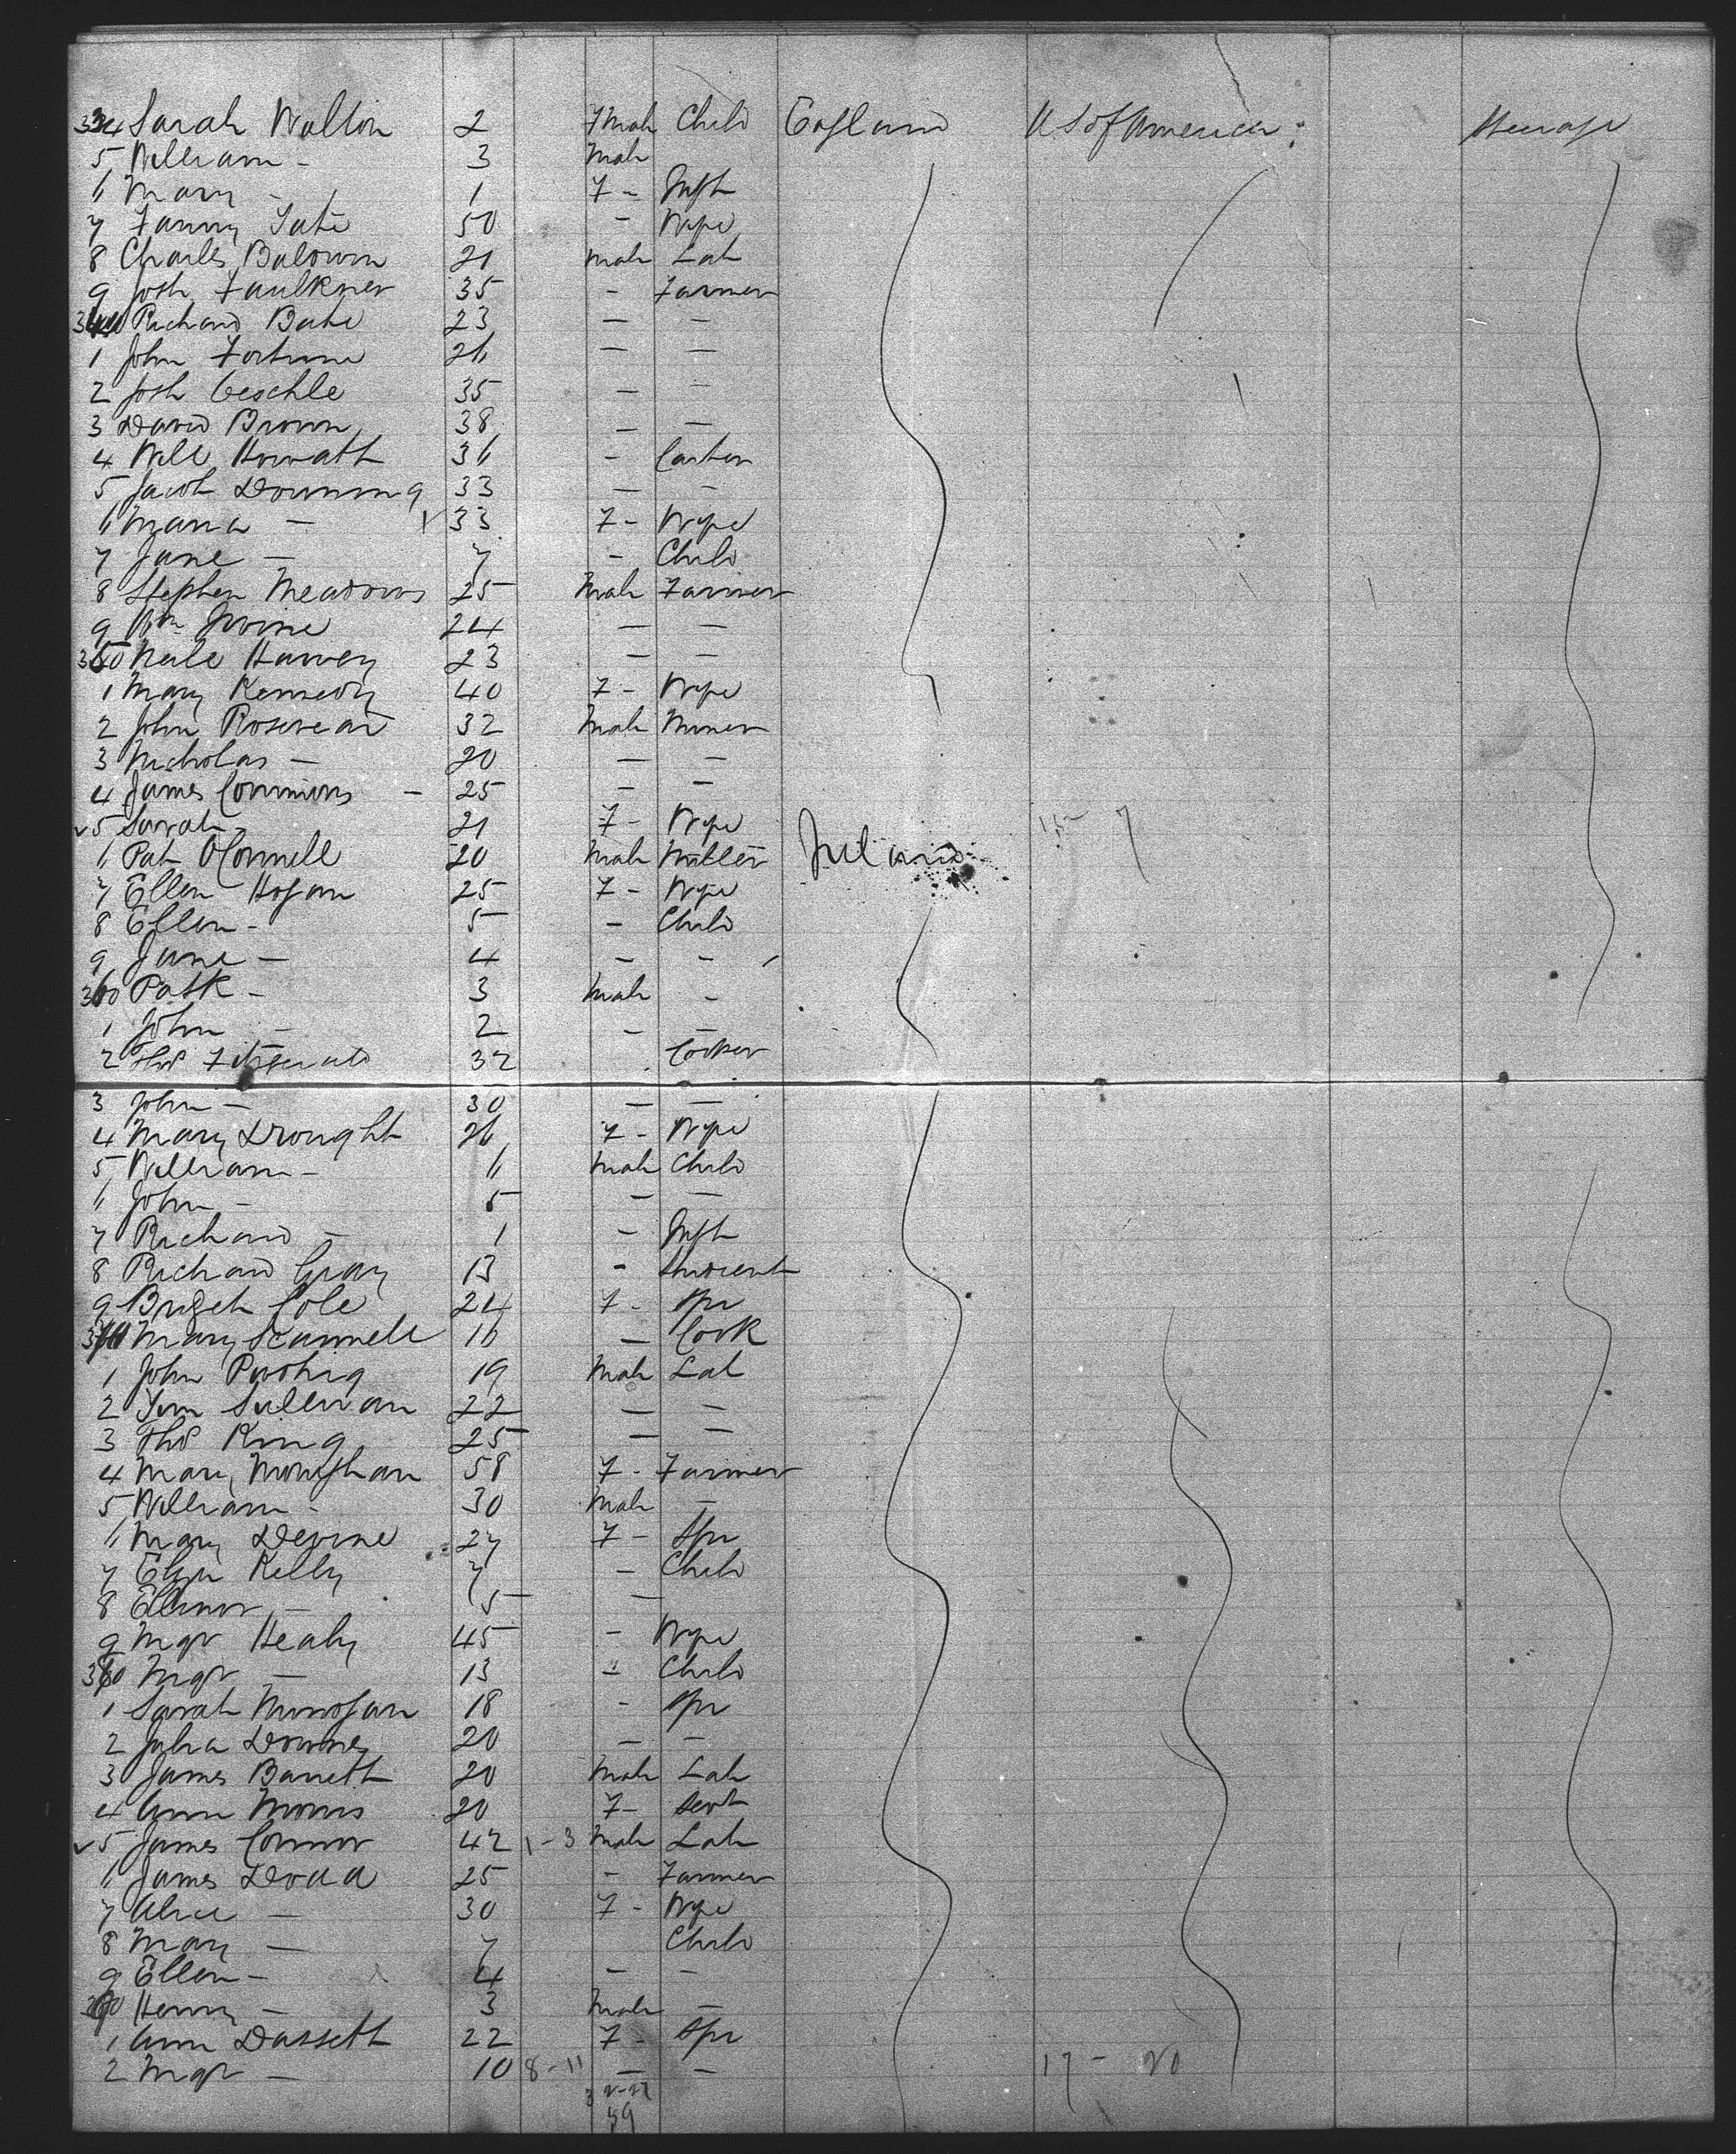 334 Sarah Walton 2 Fmale Child England U S of America Steerage
5 William - 3 Male
6 Mary - 1 F - Inft
7 Fanny Tate 50 - Wife
8 Charles Baldwin 21 Male Lab
9 Josh Faulkner 35 - Farmer
340 Richard Bate 23 - -
1 John Fortune 26 - -
2 Josh 35 - -
3 David Brown 38 - -
4 Will Howath 36 - Carter
5 Jacob Downing 33 - -
6 Maria - 33 F - Wife
7 Jane - 7 - Child
8 Stephen Meadows 25 Male Farmer
9 Wm Irvine 24 - -
350 Neale Harvey 23 - -
1 Mary Kennedy 40 F - Wife
2 John Rosevear 32 Male Miner
3 Nicholas - 20 - -
4 James Commins - 25 - -
5 Sarah - 21 F - Wife
6 Pat OConnell 20 Male Miller Ireland
7 Ellen Hogan 25 F - Wife
8 Ellen - 5 - Child
9 Jane - 4 - -
360 Patk - 3 Male -
1 John - 2 - -
2 Thos Fitzgerald 32
3 John - 30 - -
4 Mary Drought 26 F - Wife
5 William - 6 Male Child
6 John - 5 - -
7 Richard - 1 - Inft
8 Richard Gray 13 - Student
9 Bridget Cole 24 F - Spr
370 Mary Scannell 16 - Cook
1 John 19 Male Lab
2 Tim Sullivan 22 - -
3 Thos King 25 - -
4 Mary Monaghan 58 F - Farmer
5 William - 30 Male -
6 Mary Devine 27 F - Spr
7 Eliza Kelly 7 - Child
8 Elinor - 5 -
9 Mgt Healy 45 - Wife
380 Mgt - 13 - Child
1 Sarah 18 - Spr
2 Julia Downey 20 - -
3 James Barrett 20 Male Lab
4 Ann Morris 20 F - Servt
5 James Connor 42 1-3 Male Lab
6 James Dodd 25 - Farmer
7 Alice - 30 F - Wife
8 Mary - 7 Child
9 Ellen - 4 - -
390 Henry - 3 Male -
1 Ann Dassett 22 F - Spr
2 Mgt - 10 8-11 - - 17 - 20